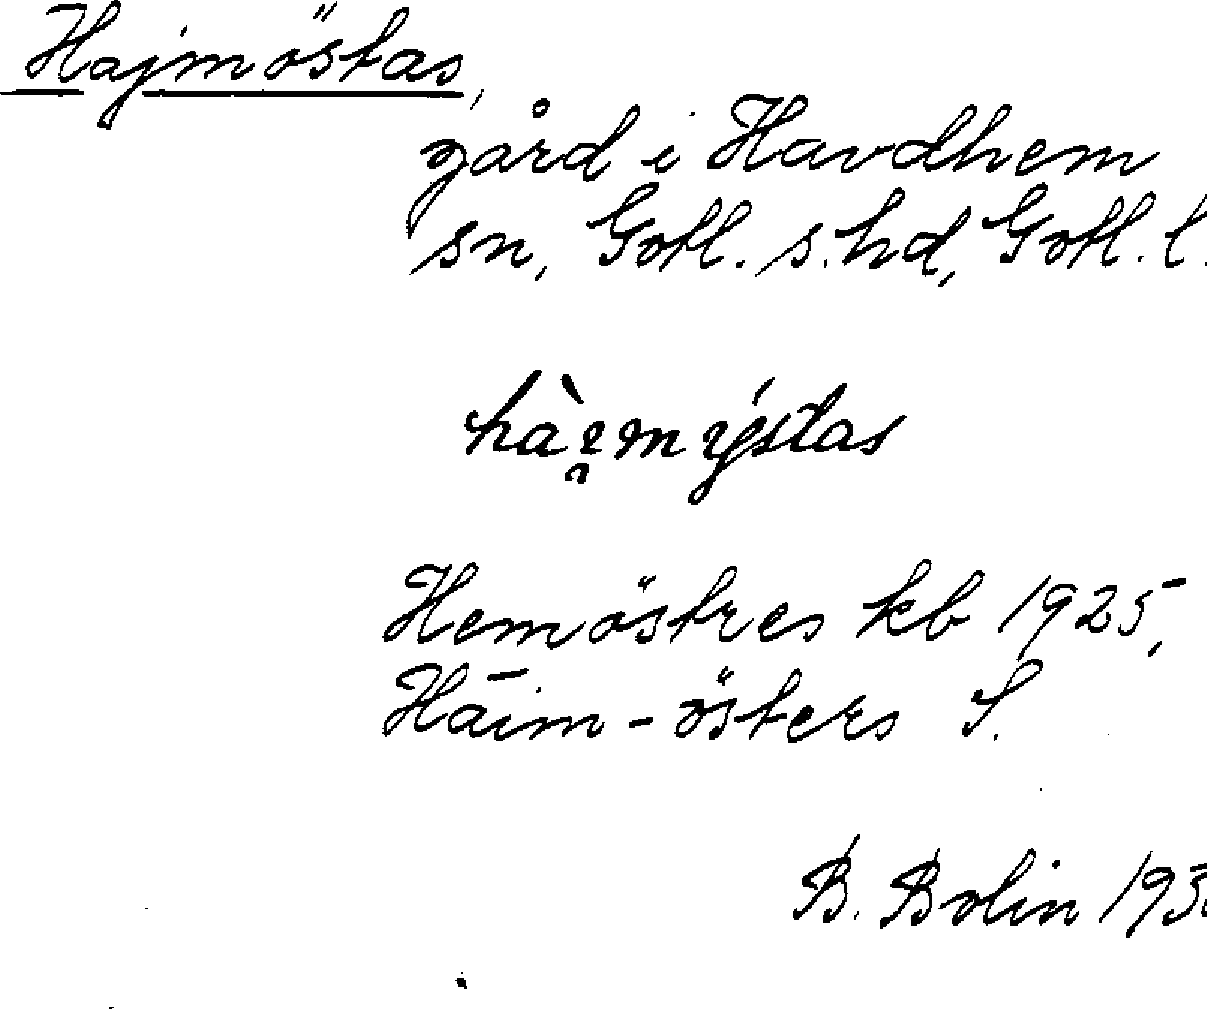 Hajmöstas,
gård i Havdhem
sn, Gotl. s. hd, Gotl. l.
Hemöstres kb 1925,
Häim-östers S.
B. Bolin 193